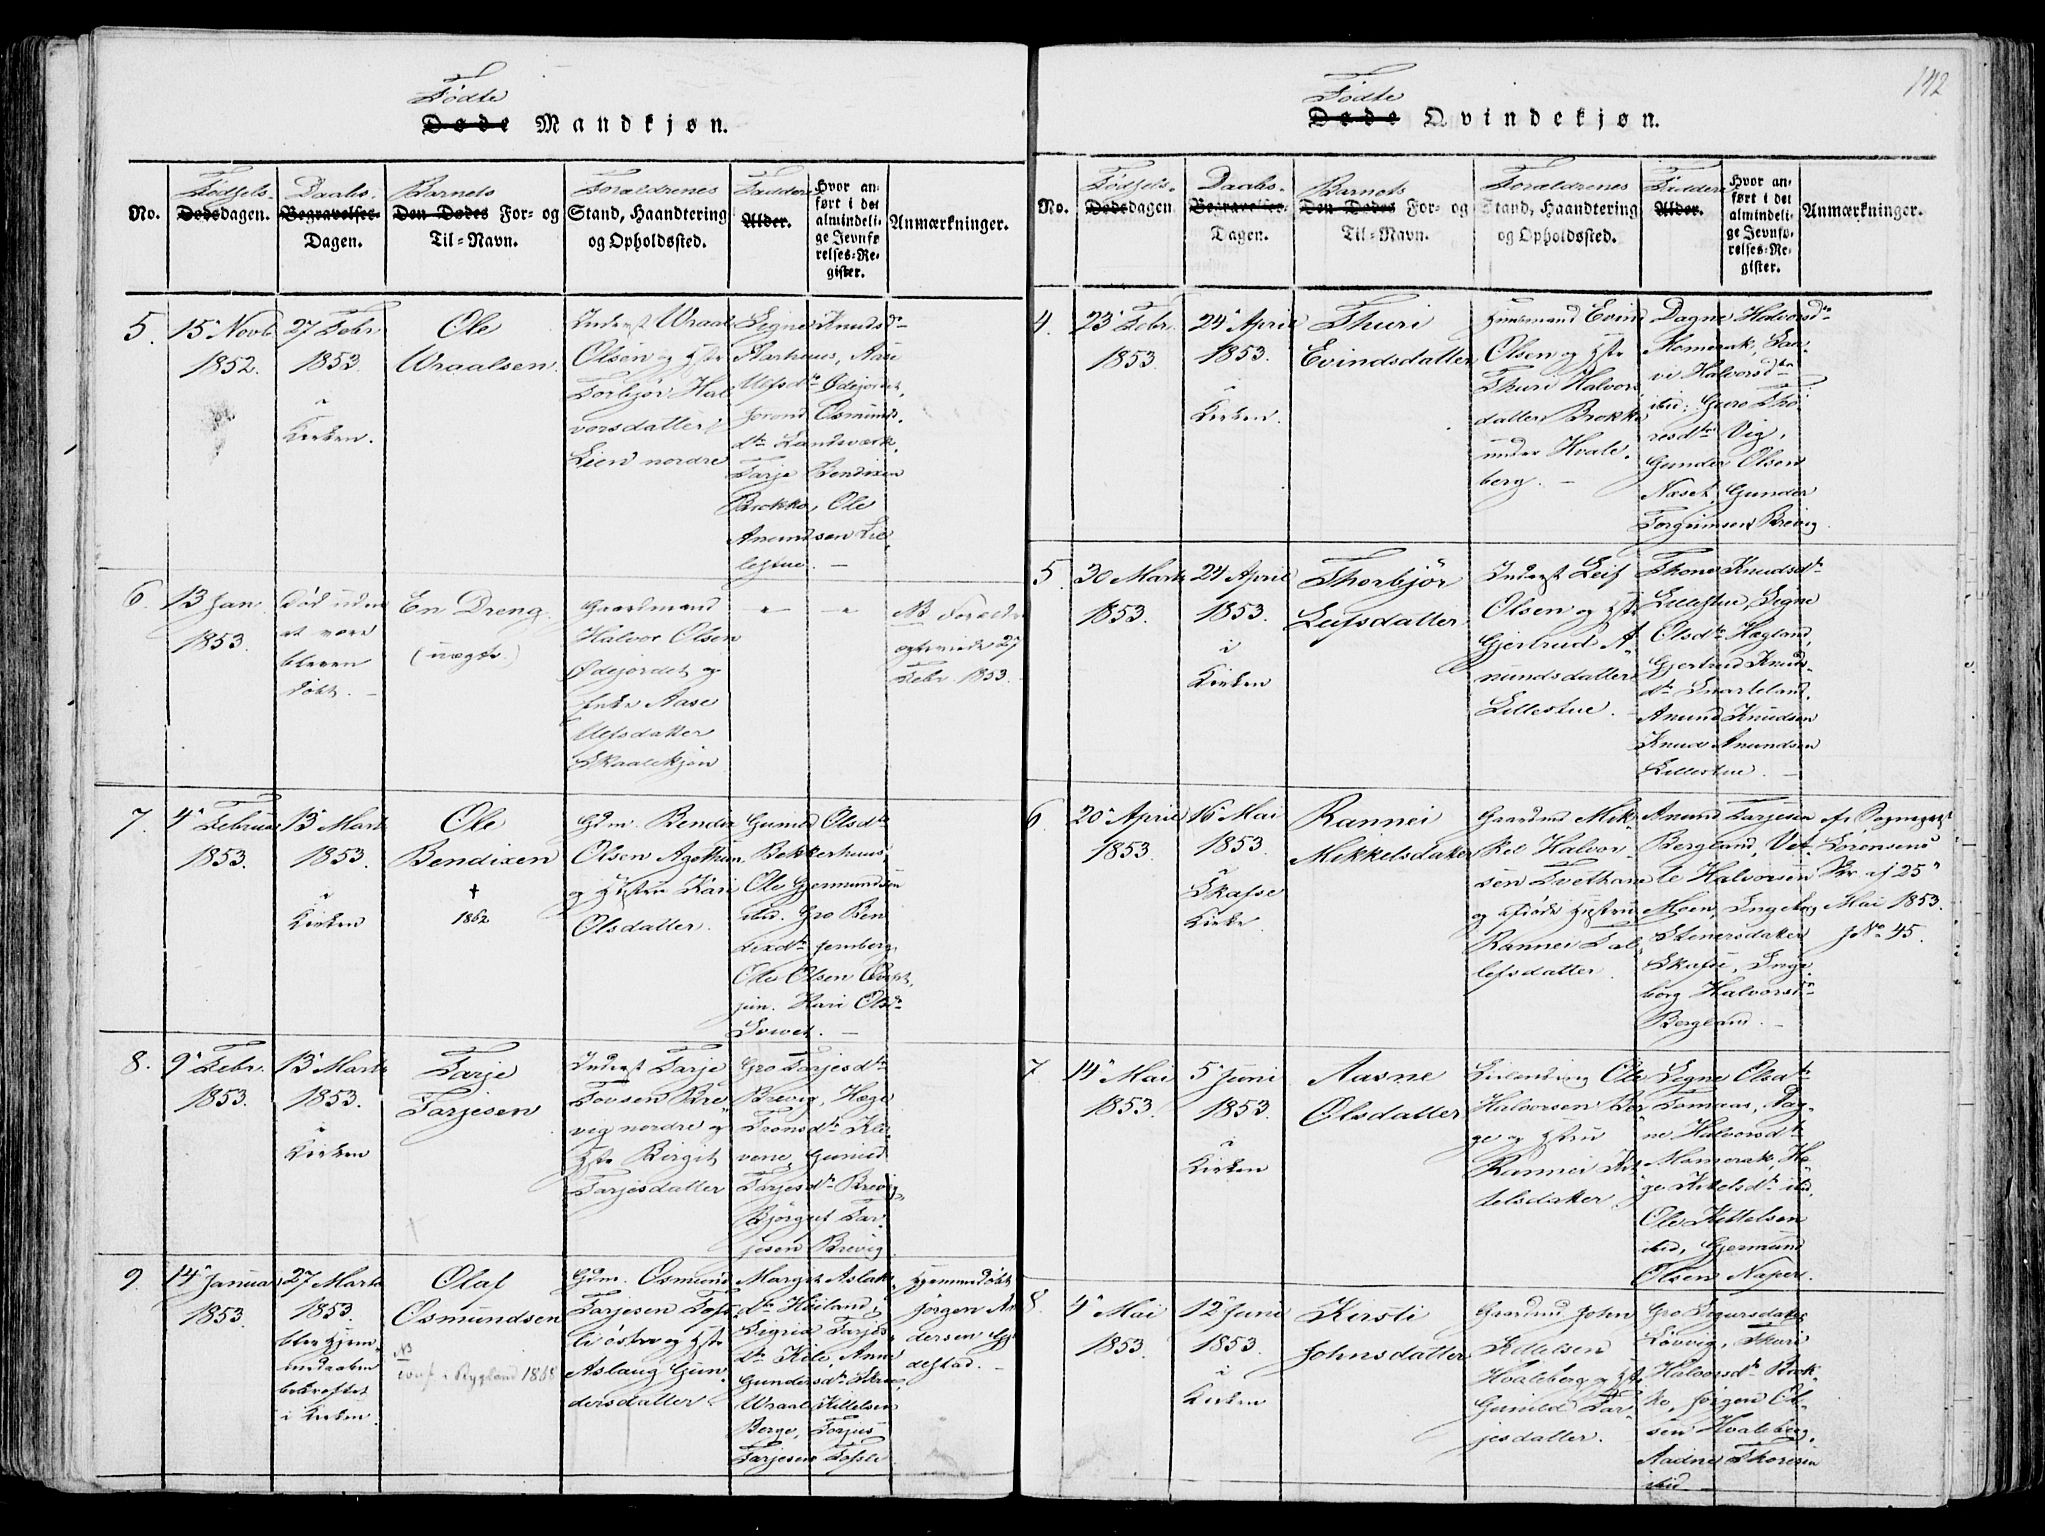 142
Fødte
Døde Mandkjøn.
No.
Fødsels-
Dødsdagen.
Daabs-
Begravelses-
Dagen.
Barnets
Den Dødes For- og
Til-Navn.
Forældrenes
Stand, Haandtering
og Opholdssted.
Faddere
Alder.
Hvor an-
ført i det
almindeli-
ge Jevnfø-
relses-Re-
gister.
Anmærkninger.
5.
15 Novb
1852.
27 Febr
1853.
i
Kirken.
Ole
Wraalsen.
Inderst Wraal
Olsen og Hstr
Torbjør Hal
vorsdatter
Lien nordre
Signe Knudsdtr
Aarhuus, Aase
Ulfsdtr Ødejordet,
Jorond Osmunds-
dtr Landsværk,
Tarje Bendixen
Brokke, Ole
Anundsen Lil-
lestue. —
6.
13 Jan.
1853.
Død uden
at være
bleven
døbt. —
En Dreng.
(uægte)
Gaardmand
Halvor Olsen
Ødejordet og
Aase
Ulfsdatter
Skaalekjøn
NB Foreldr
27
Febr. 1853.
7.
4 Februar
1853.
13 Marts
1853.
i
Kirken
Ole
Bendixen
†
1862
Gdm. Bendix
Olsen Agethun
og Hstru Kari
Olsdatter.
Gunild Olsdtr
Bekkerhuus,
Ole Gjermundsen
ibid. Gro Ben
dixdtr Jemberg,
Ole Olsen
jun. Kari Olsdtr
—
8.
9 Febr.
1853.
13 Marts
1853.
i
Kirken
Tarje
Tarjesen
Inderst Tarje
Tovsen Bre
vig nordre og
Hstr Birgit
Tarjesdatter
Gro Tarjesdtr
Brevig, Hæge
Tronsdtr Kle-
vene, Gunild
Tarjesdtr Brevig,
Bjørgulf Tar-
jesen Brevig
9.
14 Januar
1853.
27 Marts
1853.
blev hjem-
medaaben
bekræftet
i Kirken.
Olaf
Osmundsen
NB
i Bygland 1868
Gdm. Osmund
Tarjesen Fosse
li østre og Hstr
Aslaug Gun
dersdatter
Margit Aslaks-
dtr Heiland,
Sigrid Tarjes-
dtr Kile, Anne
Gundersdtr
Wraal Kittelsen
Berge, Torjus
Tarjesen Fossli
Hjemmedøbt
Jørgen An
dersen Eg
destad. —
Fødte
Døde Qvindekjøn.
No.
Fødsels-
Dødsdagen
Daabs-
Begravelses-
Dagen.
Barnets
Den Dødes For- og
Til-Navn.
Forældrenes
Stand, Haandtering
og Opholdssted.
Faddere
Alder.
Hvor an-
ført i det
almindeli-
ge Jevnfø-
relses-Re-
gister.
Anmærkninger.
4.
23 Febr.
1853
24 April
1853.
i
Kirken.
Thuri
Evindsdatter
Huusmand Evind
Olsen og Hstr
Thuri Halvors
datter Brokke
under Hvale-
berg. —
Dagne Halvorsdtr
Momerak, Sal-
ve Halvorsdtr
ibid: Guro Tho
resdtr Vig,
Gunder Olsen
Næset, Gunder
Torgrimsen Brevig.
5
30 Marts
1853.
24 April
1853.
i
Kirken
Thorbjør
Leifsdatter
Inderst Leif
Olsen og Hstr
Gjertrud A-
nundsdatter
Lillestue.
Thone Knudsdtr
Lillestue, Signe
Olsdtr Høgland,
Gjertrud Knuds-
dtr Snarteland,
Anund Knudsen
Knud Anundsen
Lillestue. —
6
20 April
1853.
16 Mai
1853.
i
Skafse
Kirke.
Rannei
Mikkelsdatter
Gaardmd Mik-
kel Halvor-
sen Tvethane
og afdøde Hustru
Rannei Sal-
lefsdatter.
Anund Tarjesen
Bergland, Vet-
le Halvorsen
Moen, Ingeborg
Stenersdatter
Skafse, Inge-
borg Halvorsdtr
Bergland. —
af Sognepræst
Sørensens
Skr af 25
Mai 1853.
J. No 45.
7
14 Mai
1853.
5 Juni
1853.
i
Kirken
Aasne
Olsdatter
Leilending Ole
Halvorsen Ber
ge og Hstru
Rannei Kit
telsdatter
Signe Olsdtr
Tomaas, Dag-
ne Halvorsdtr
Momerak, Hæ-
ge Kittelsdtr ibid,
Ole Kittelsen
ibid, Gjermund
Olsen Naper.
8.
4 Mai
1853.
12 Juni
1853.
i
Kirken
Kirsti
Johnsdatter
Gaardmd John
Kittelsen
Hvaleberg og Hstr
Gunild Tar-
jesdatter.
Gro Sigursdatter
Løvvig, Thuri
Halvorsdtr Brok-
ke, Jørgen Ol-
sen Hvaleberg,
Aadne Thoresen
ibid —